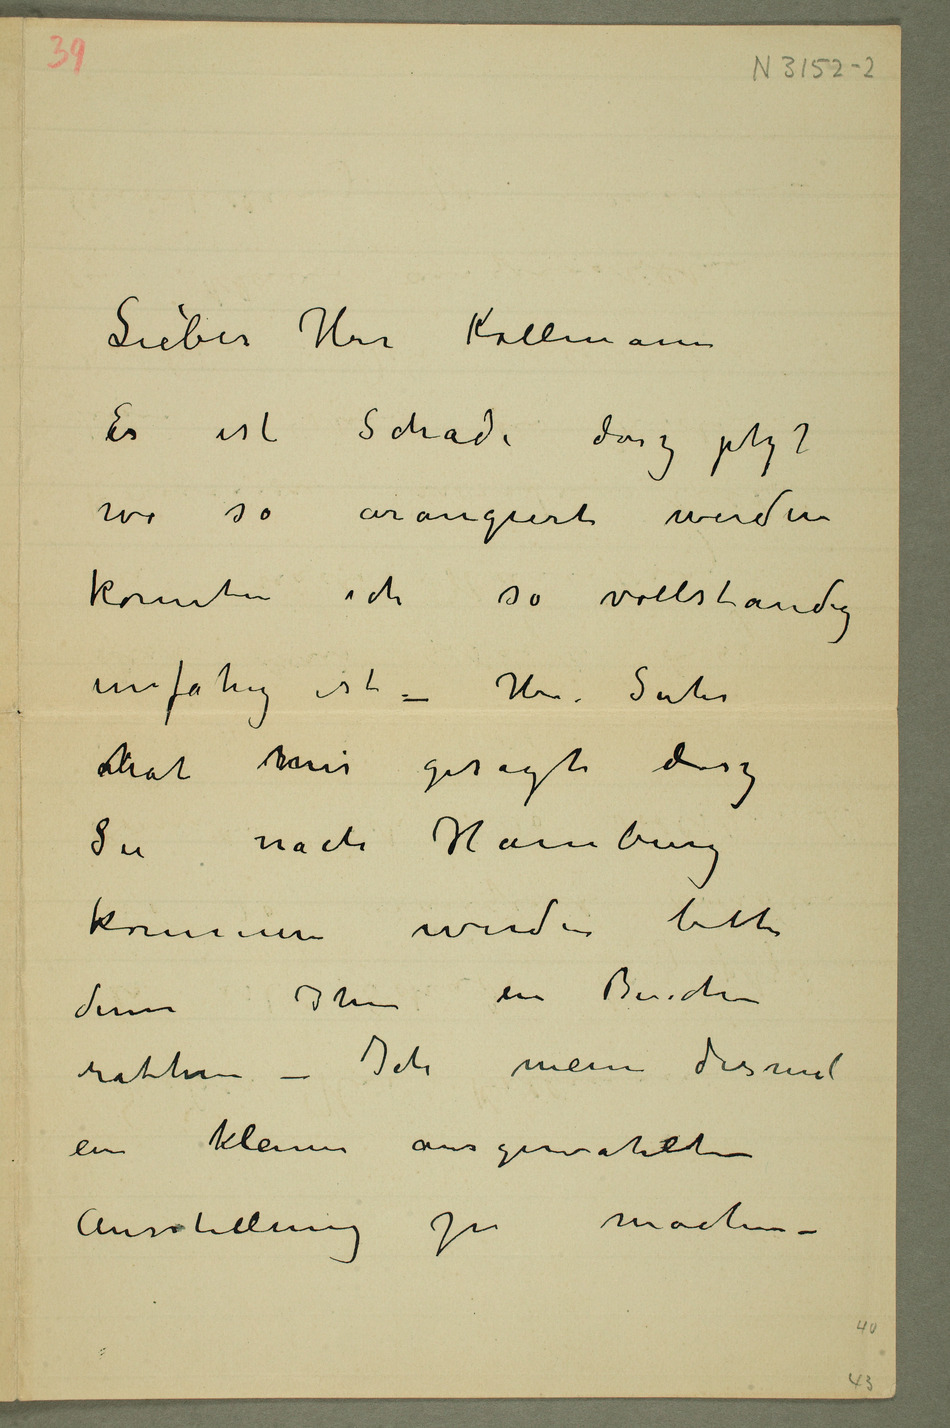 39
N 3152-2
Lieber Herr Kollmann
Es ist Schade dasz jetzt
wo so arangiert werden
konnten ich so vollstandig
unfahig ist – Herr
hat mir gesagt dasz
Sie nach Hamburg
kommen werden bitte
denn Ihm ein Besuch
rathen – Ich meine diesmal
ein kleine ausgewahlten
Ausstellung zu machen –
40
43